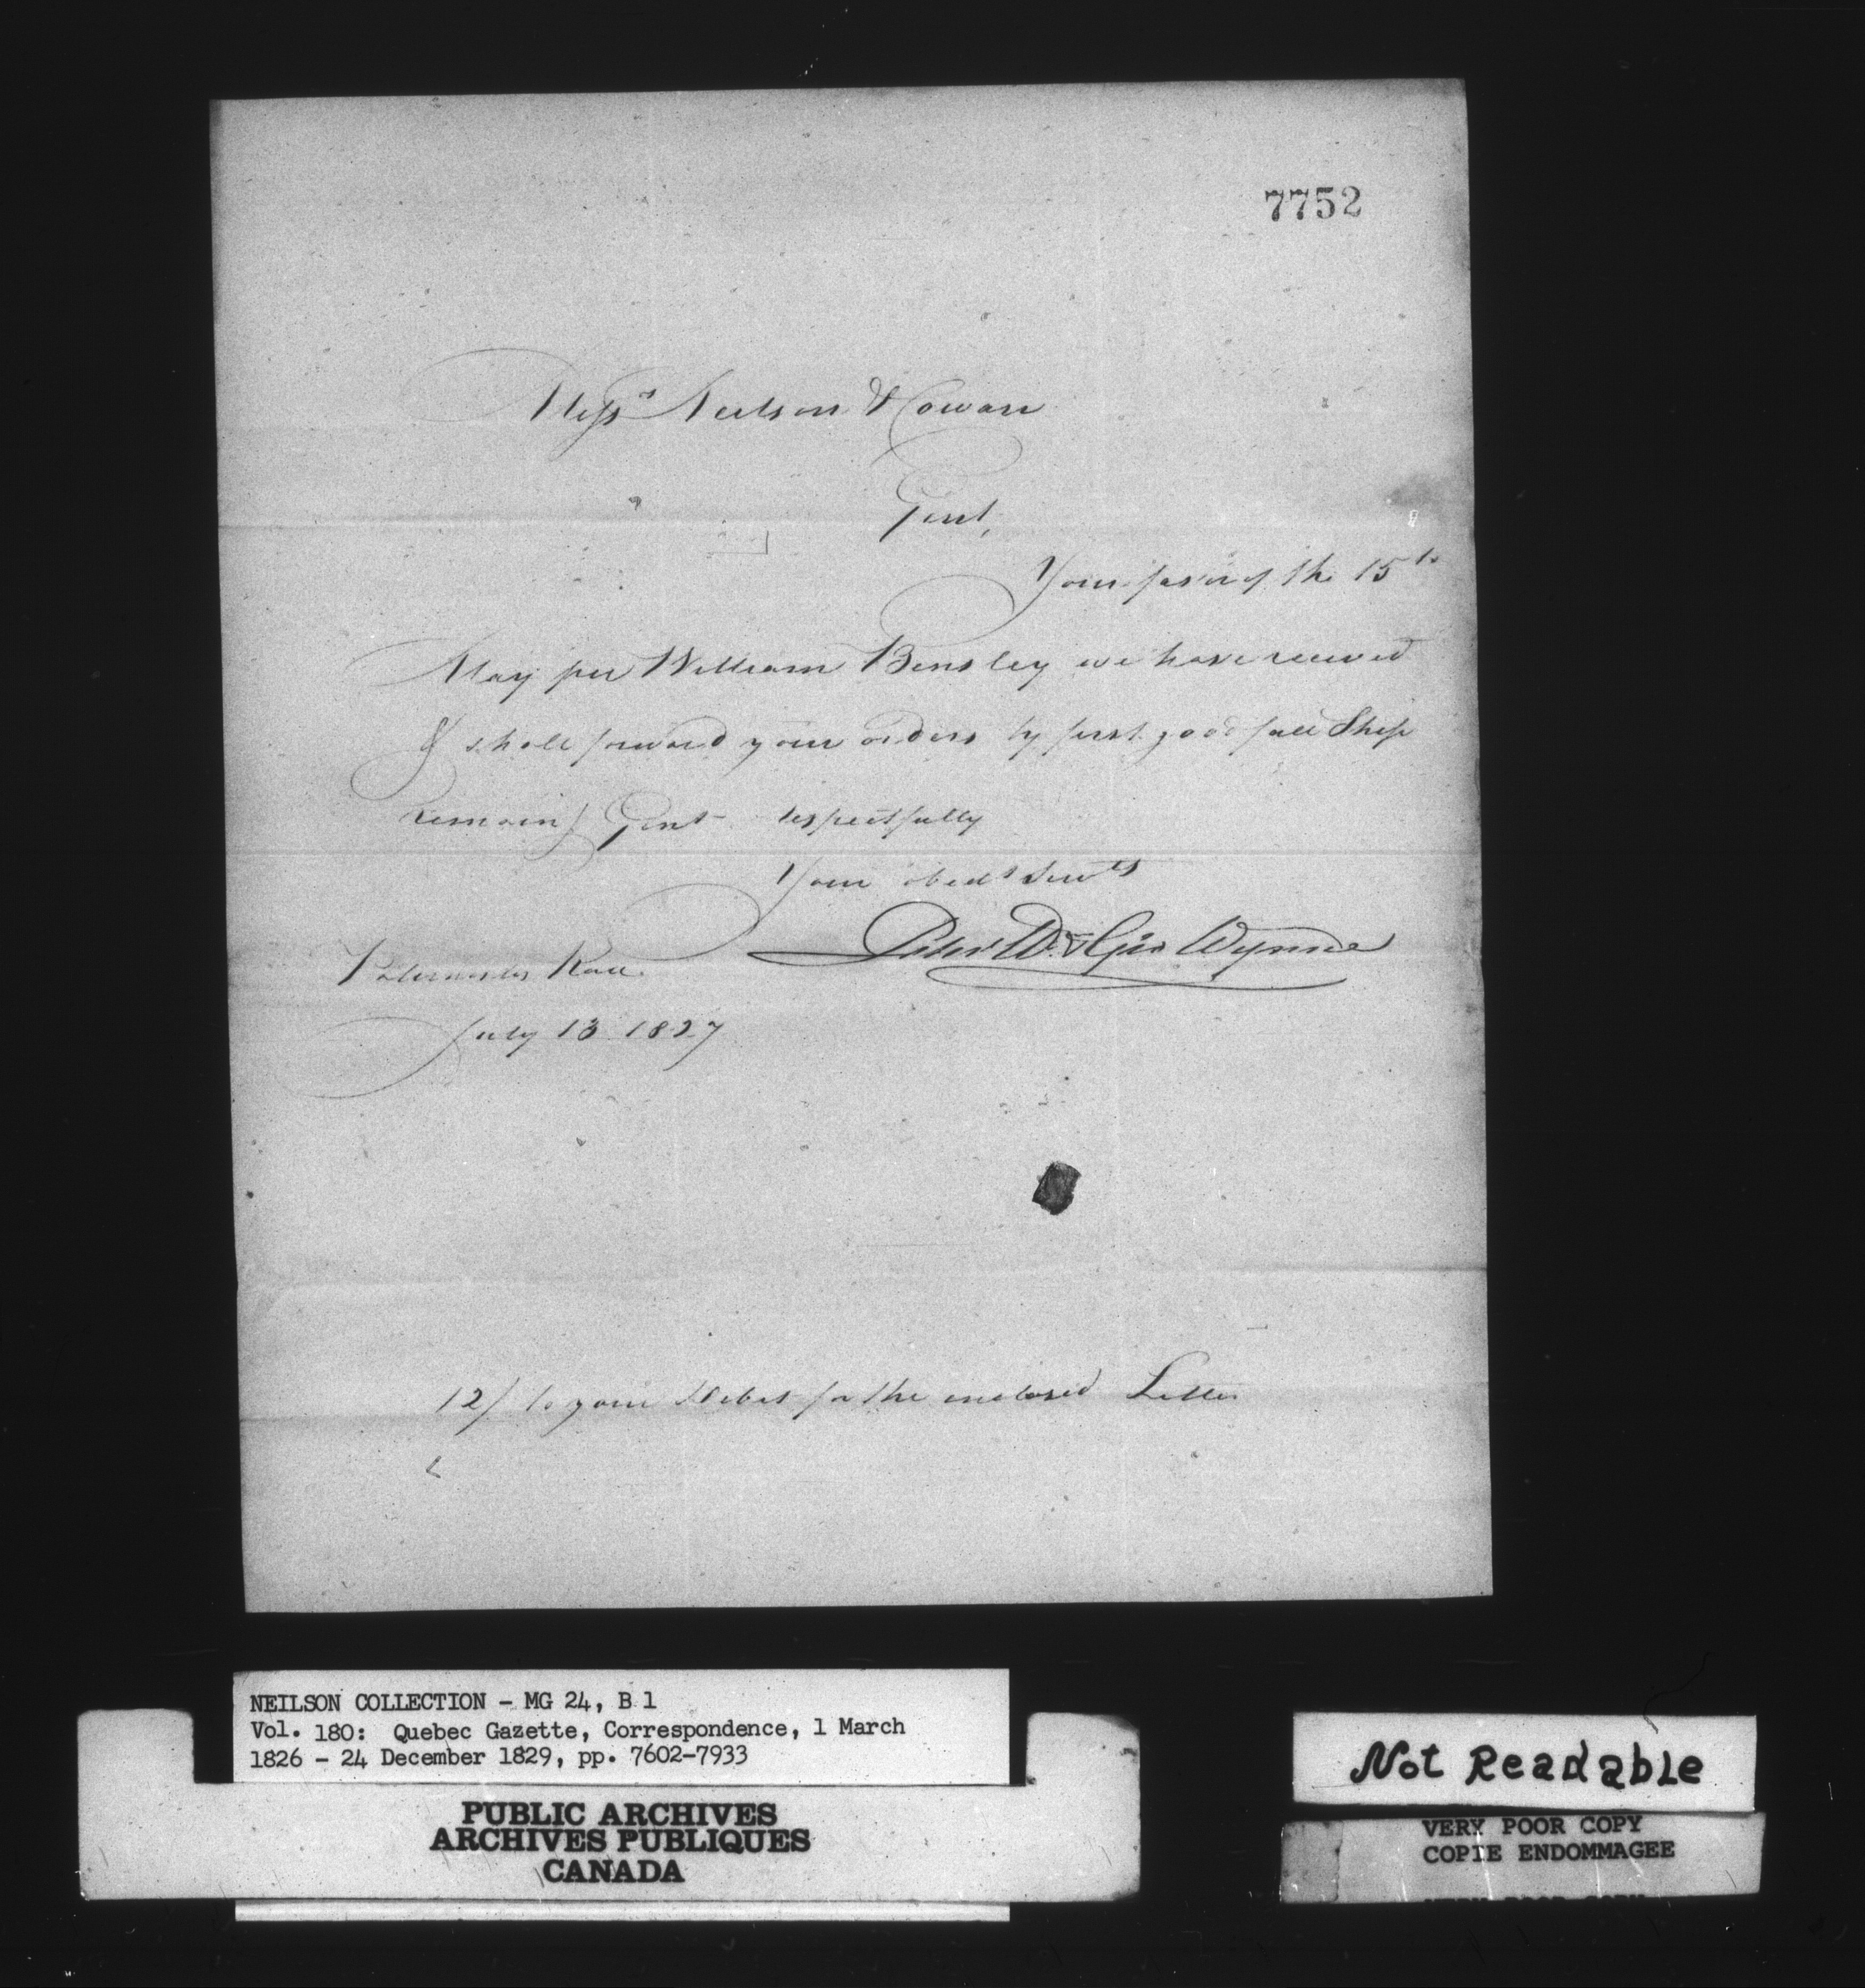 7752
Messrs Neilson & Cowan
Gent,
Your favor of the 15th
May per William Bensley we have received
& shall forward your orders by first good fall Ship
remain Gent respectfully
Your obedt Servts
Peter Wm & Geo Wynne
Paternoster Row
July 13 1827
12/ to your Debit for the enclosed Letter
NEILSON COLLECTION - MG 24, B 1
Vol. 180: Quebec Gazette, Correspondence, 1 March
1826 - 24 December 1829, pp. 7602-7933
PUBLIC ARCHIVES
ARCHIVES PUBLIQUES
CANADA
Not Readable
VERY POOR COPY
COPIE ENDOMMAGEE